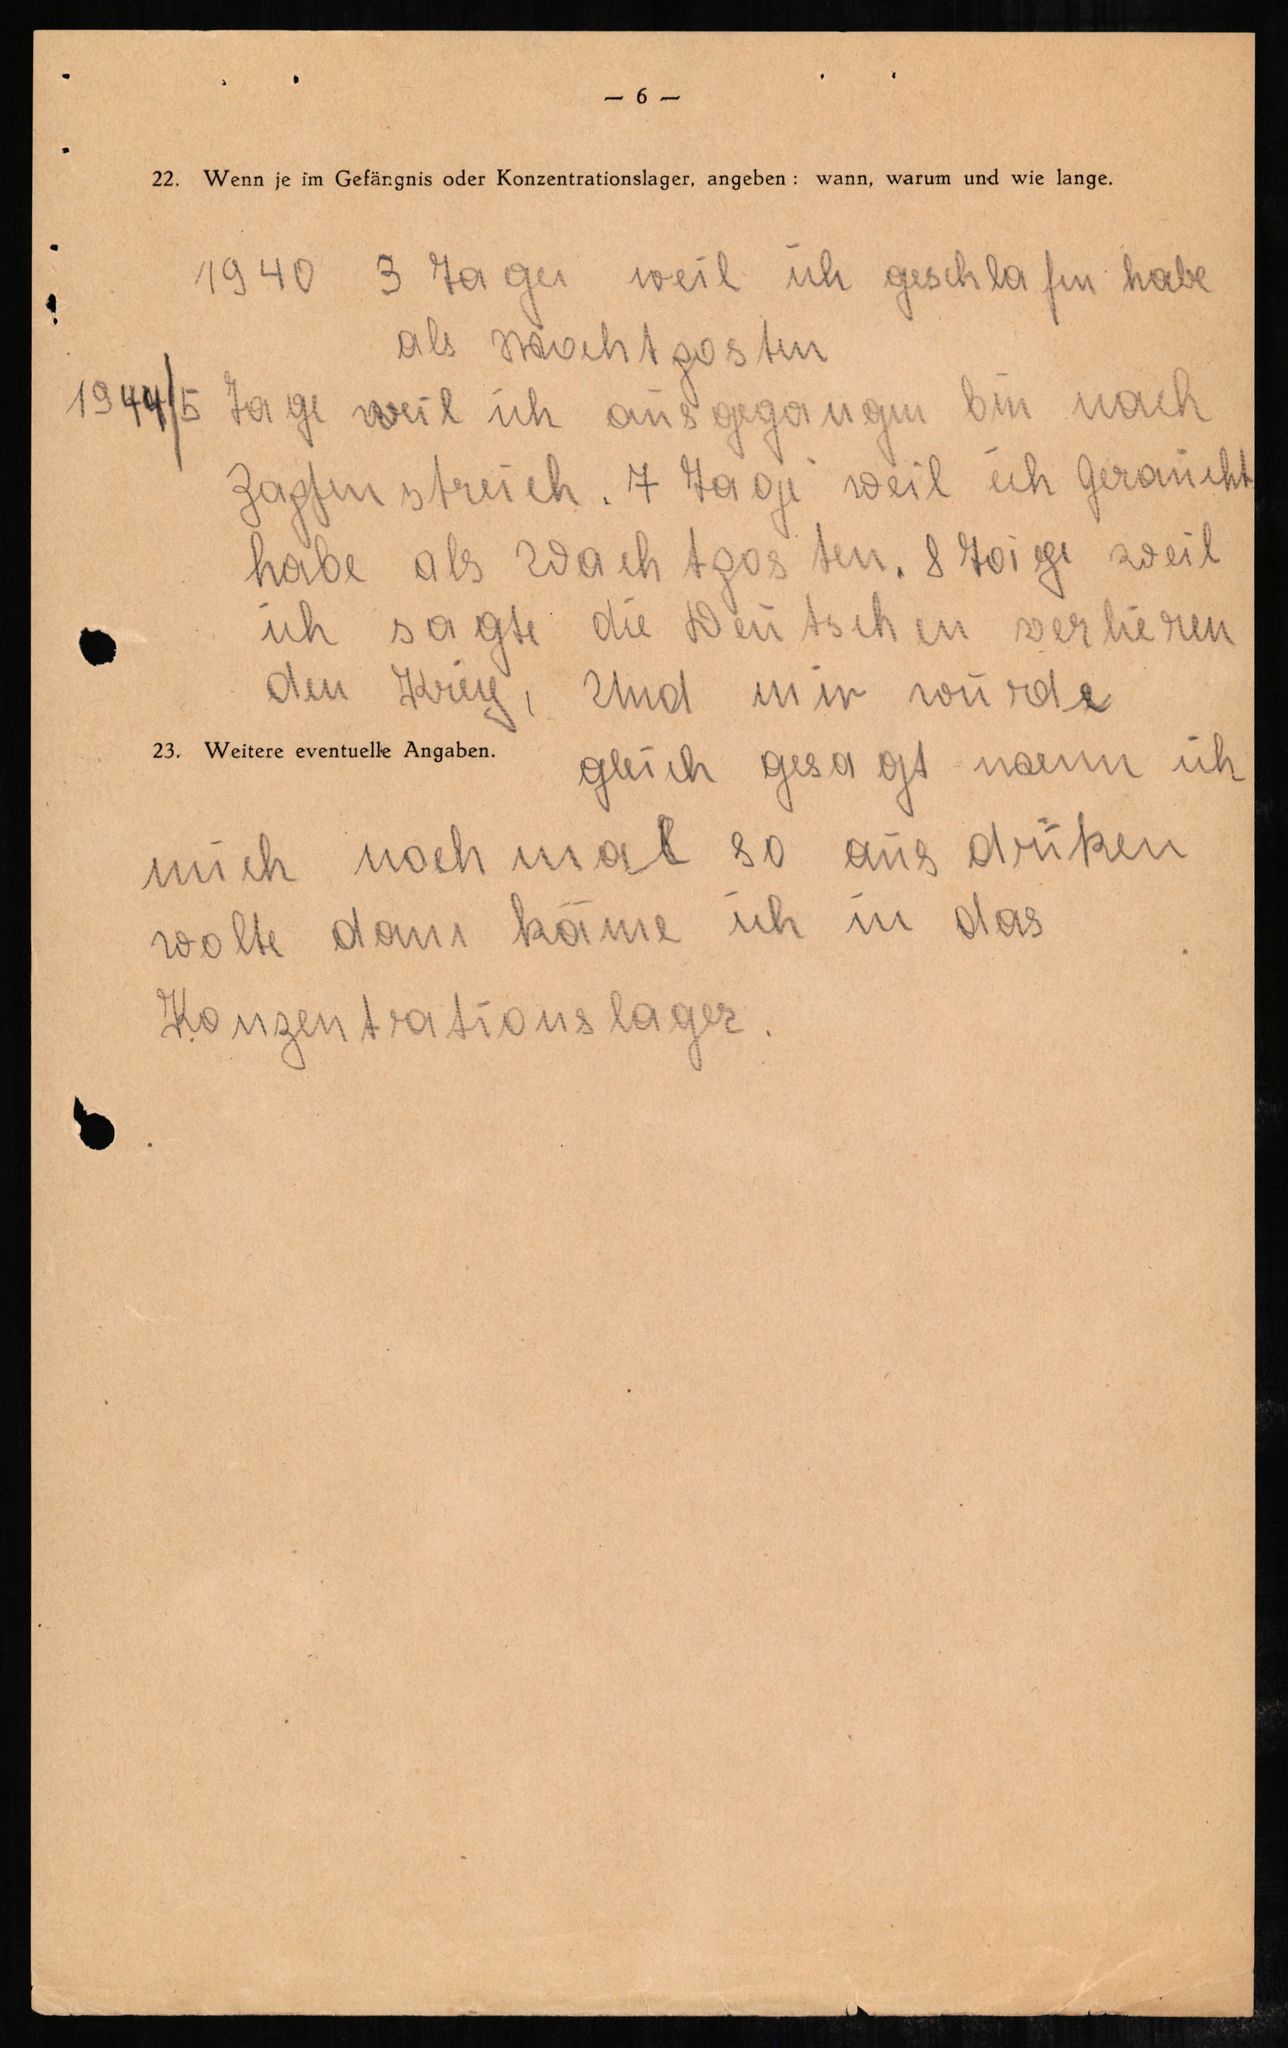 — 6 —
22. Wenn je im Gefängnis oder Konzentrationslager, angeben : wann, warum und wie lange.
1940 3 Tage weil ich geschlafen habe
als Wachtposten
1944/5 Tage weil ich ausgegangen bin nach
Zapfenstreich. 7 Tage weil ich Geraucht
habe als Wachtposten. 8 Tage weil
ich sagte die Deutschen verlieren
den Krieg, Und mir wurde
23. Weitere eventuelle Angaben.
gleich gesagt wenn ich
mich noch mal so aus drüken
wolte dann käme ich in das
Konzentrationslager.